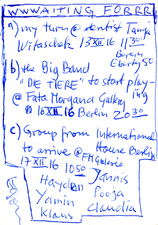 WWWAITING FORRR
a) my turn @ dentist Tanja
Witaschek 13 XII 16 11 30
Berlin
Eberty 50
b) the Big Band
"DE TIERE" to start play-
@ Fata Morgana Gallery ing
16 XII 16 Berlin 20 30
c) Group from International
to arrive @ FM Galerie House Berlin
17 XII 16 10 50
Hayden Yannis
Yamin Pooja
Klaus Claudia